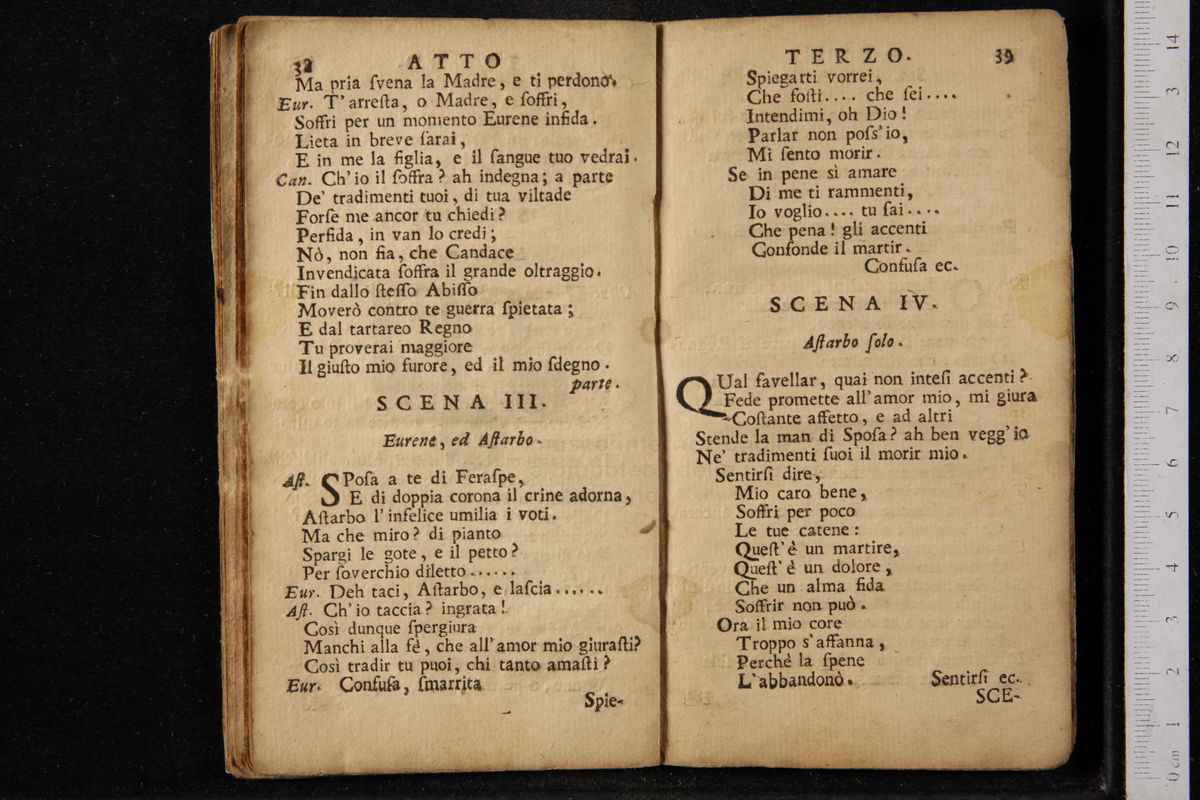 38 ATTO
Ma pria ſvena la Madre, e ti perdono.
Eur. T'arreſta, o Madre, e ſoffri,
Soffri per un momento Eurene infida.
Lieta in breve ſarai,
E in me la figlia, e il ſangue tuo vedrai.
Can. Ch'io il ſoffra? ah indegna; a parte
De' tradimenti tuoi, di tua viltade
Forſe me ancor tu chiedi?
Perfida, in van lo credi;
Nò, non fia, che Candace
Invendicata ſoffra il grande oltraggio.
Fin dallo ſteſſo Abiſſo
Moverò contro te guerra ſpietata;
E dal tartareo Regno
Tu proverai maggiore
Il giuſto mio furore, ed il mio ſdegno.
parte.
SCENA III.
Eurene, ed Aſtarbo.
Aſt. SPoſa a te di Feraſpe,
E di doppia corona il crine adorna,
Aſtarbo l'infelice umilia i voti.
Ma che miro? di pianto
Spargi le gote, e il petto?
Per ſoverchio diletto......
Eur. Deh taci, Aſtarbo, e laſcia......
Aſt. Ch'io taccia? ingrata!
Così dunque ſpergiura
Manchi alla fè, che all'amor mio giuraſti?
Così tradir tu puoi, chi tanto amaſti?
Eur. Confuſa, ſmarrita
Spie-
TERZO. 39
Spiegarti vorrei,
Che foſti.... che ſei....
Intendimi, oh Dio!
Parlar non poſs'io,
Mi ſento morir.
Se in pene sì amare
Di me ti rammenti,
Io voglio.... tu ſai....
Che pena! gli accenti
Confonde il martir.
Confuſa ec.
SCENA IV.
Aſtarbo ſolo.
QUal favellar, quai non inteſi accenti?
Fede promette all'amor mio, mi giura
Coſtante affetto, e ad altri
Stende la man di Spoſa? ah ben vegg'io
Ne' tradimenti ſuoi il morir mio.
Sentirſi dire,
Mio caro bene,
Soffri per poco
Le tue catene:
Queſt'è un martire,
Queſt'è un dolore,
Che un alma fida
Soffrir non può.
Ora il mio core
Troppo s'affanna,
Perchè la ſpene
L'abbandonò. Sentirſi ec.
SCE-
14
3
12
11
10
9
8
7
6
5
4
3
2
1
0 cm